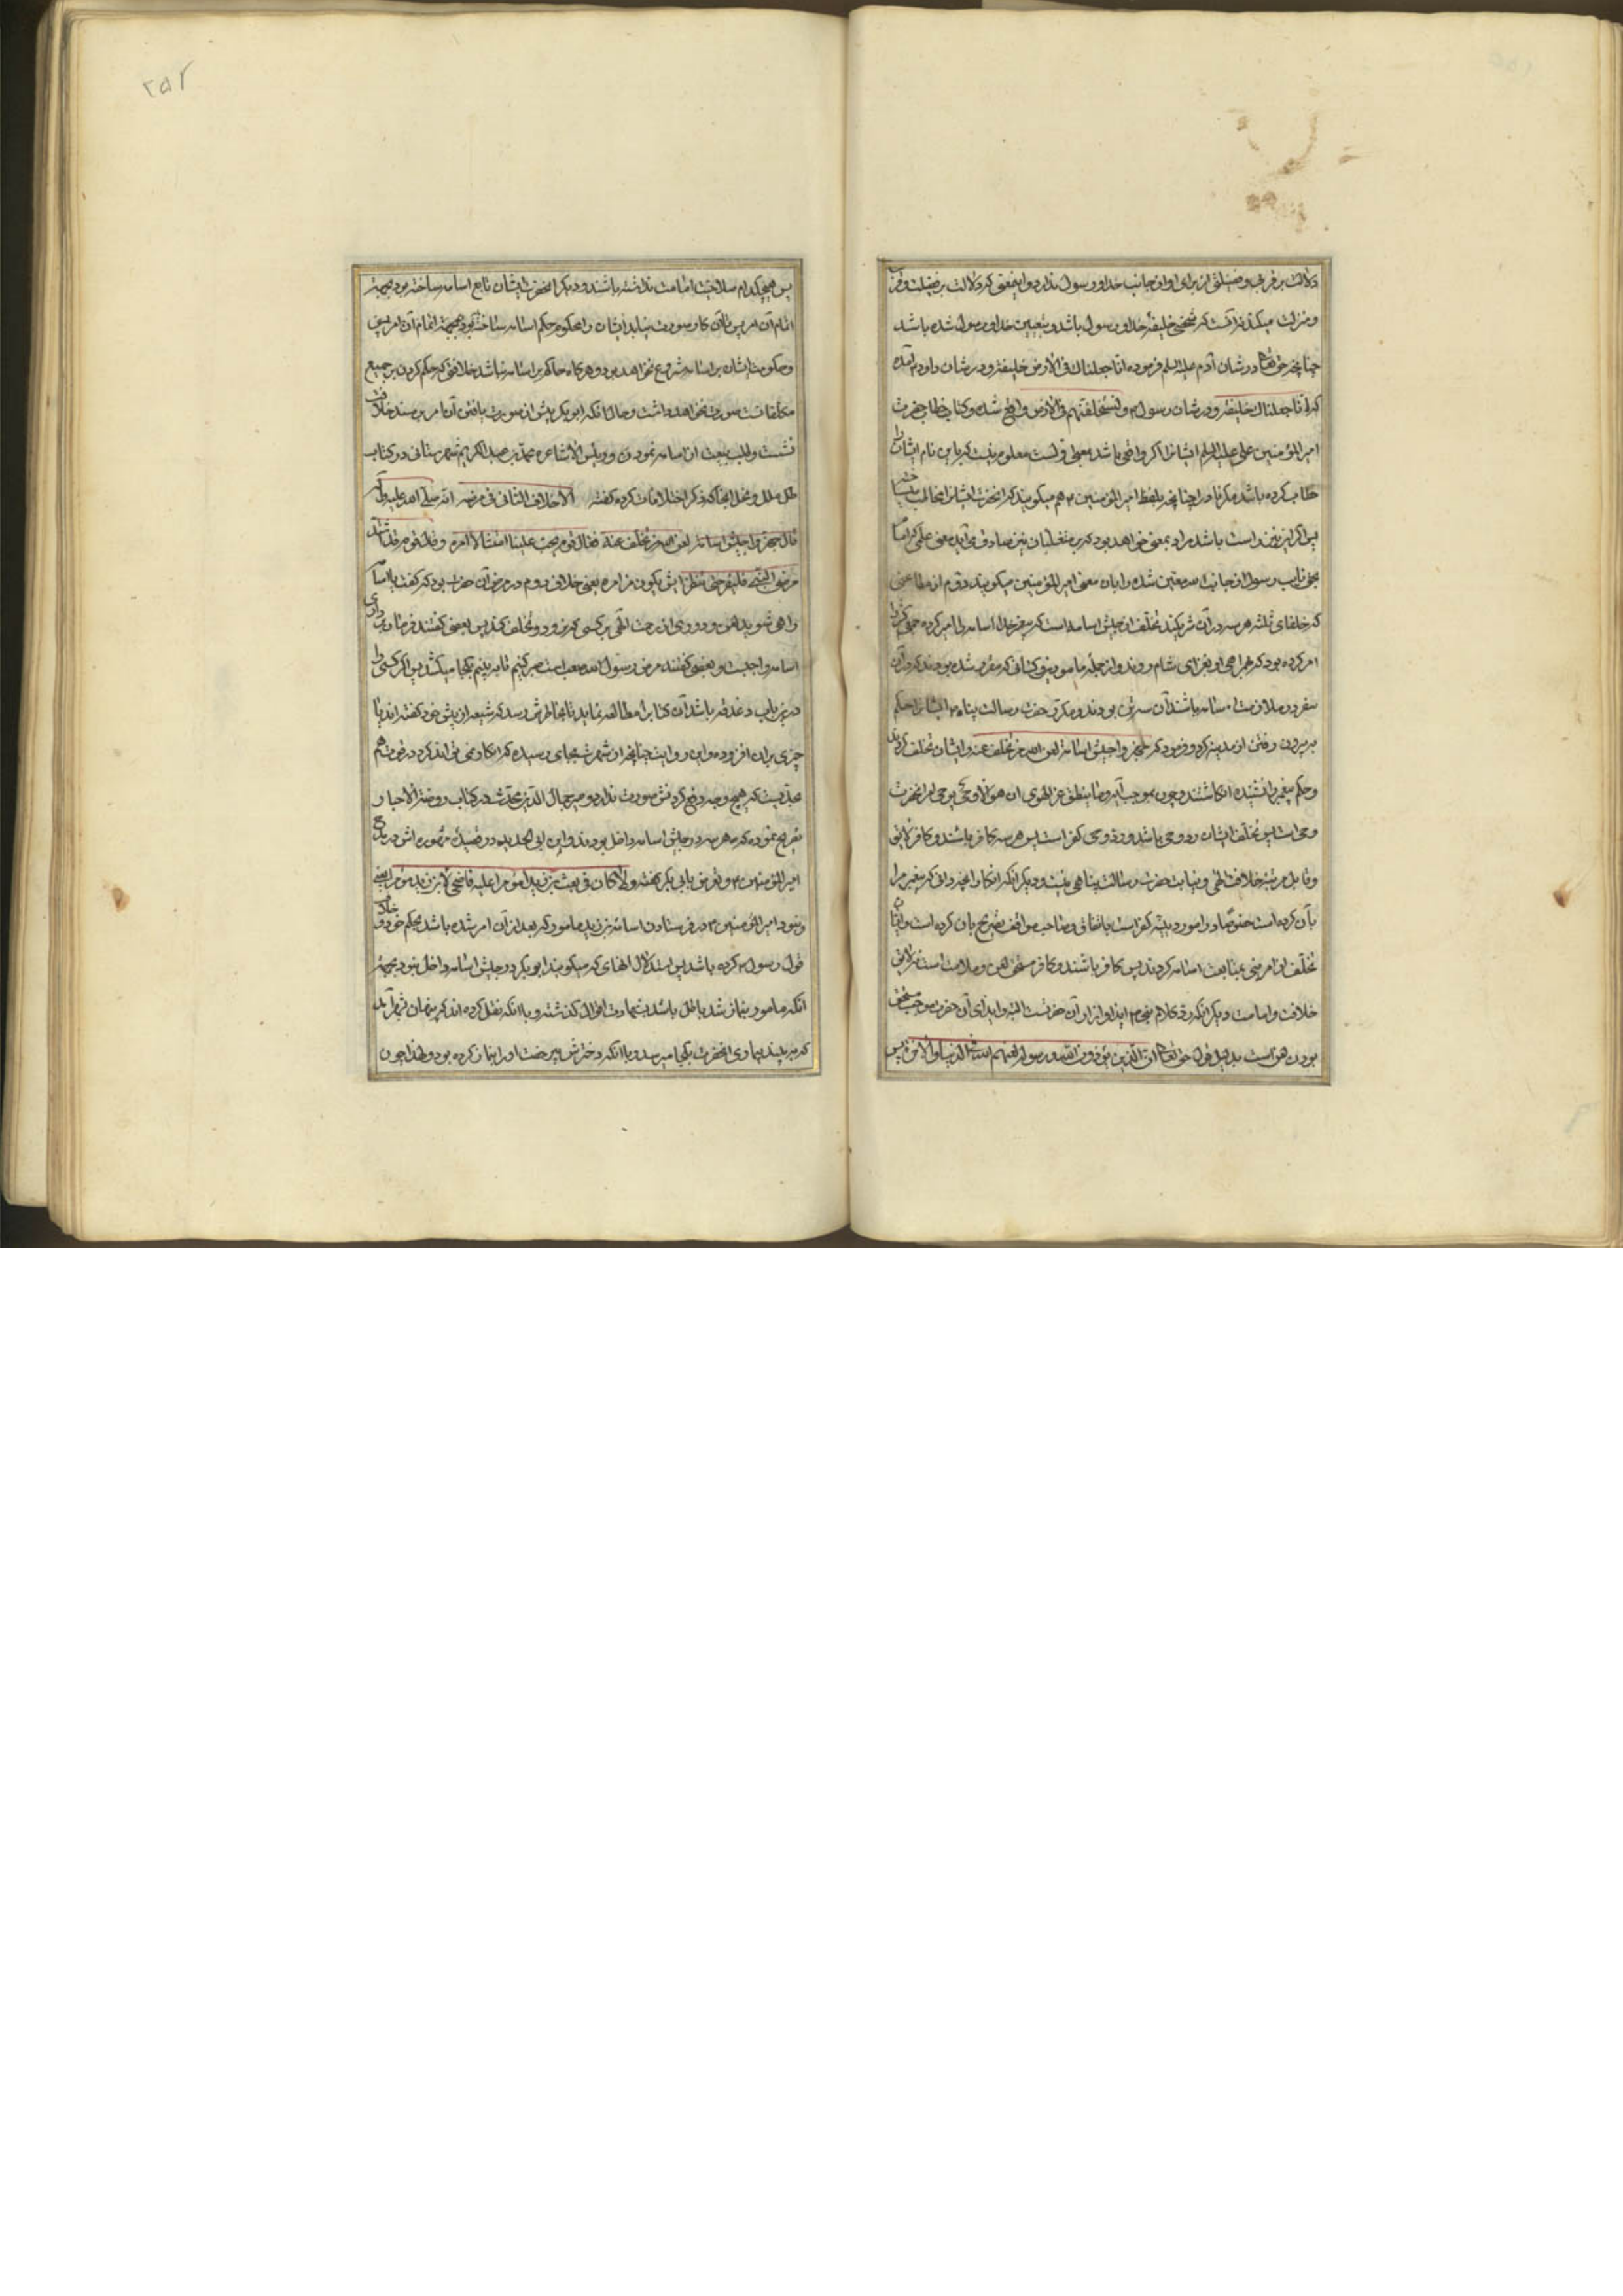 دلالت بر قرب و فضیلتی از برای او از جانب خدا و رسول ندارد و این معنی که دلالت بر فضیلت و قرب
و منزلت میکند آنست که شخصی خلیفه خدا و رسول باشد و بتعیین خدا و رسول شده باشد
چنانچه حق تعالی در شان آدم علیه السلم فرموده انا جعلناک فی الارض خلیفة و در شان داود آمده
که انا جعلناک خلیفة و در شان رسول م لیستخلفنهم فی الارض واقع شده و خطاب حضرت
امیر المؤمنین علی علیه السلم ایشانرا اگر واقعی باشد معلوم نیست که باین نام ایشان را
خطاب کرده باشد مکر نادرا چنانچه بلفظ امیر المؤمنین هم میکویند که انحضرت ایشانرا مخاطب
پس اگر این راست باشد مراد معنی خواهد بود که بر متغلبان نیز صادق می آید نه معنی
بحق نایب رسول از جانب الله معین شده را بان معنی امیر المؤمنین میکویند دوم از مطاعنی
که خلفای ثلثه هر سه در آن شریکند تخلف از جیش اسامه است که پیغمبر خدا اسامه را امیر کرده جمعی کثیر را
امر کرده بود که همراهی او بغزای شام روند و از جمله مامورین و کسانی که مقرر شده بودند که در آن
سفر در ملازمت اسامه باشند آن سه تن بودند و مکرر حضرت رسالت پناه م ایشانرا حکم
به بیرون رفتن از مدینه کرد و فرمود که جهزوا جیش اسامة لعن الله من تخلف عنه و ایشان تخلف کردند
و حکم پیغمبر را نشنیده انکاشتند و چون بموجب آیه و ما ینطق عن الهوی ان هو الا وحی یوحی امر انحضرت
وحی است پس تخلف ایشان رد وحی باشد و رد وحی کفر است پس هر سه کافر باشند و کافر لایق
و قابل مرتبه خلافت الهی و نیابت حضرت رسالت پناهی نیست و دیکر انکه انکار انچه دانی که پیغمبر مرا
بآن کرده است خصوصا در امور دینیه کفر است باتفاق و صاحب مواقف تصریح بان کرده است و ایشان
تخلف از امر نبی بمتابعت اسامه کردند پس کافر باشند و کافر مستحق لعن و ملامت است نه لایق
خلافت و امامت و دیکر انکه رد کلام نبی م ایذا و ازار آن حضرتست البته و ایذای آن حضرت موجب مستحق
بودن لعن است بدلیل قول حق تعالی ان الذین یؤذون الله و رسوله لعنهم الله فی الدنیا و الاخرة پس
پس هیچکدام صلاحیت امامت نداشته باشند و دیکر انحضرت ایشان تابع اسامه ساخته بود بجهة
اتمام آن امر پس تا آن کار صورت نیابد ایشان را محکوم حکم اسامه ساخته بود بجهة اتمام آن امر پس
و حکومت ایشان بر اسامه مشروع نخواهد بود و هر گاه حاکم بر اسامه نباشد خلافتی که حکم کردن بر جمیع
مکلفانست صورت نخواهد داشت و حال آنکه ابو بکر پیش از صورت یافتن آن امر بر مسند خلافت
نشست و طلب بیعت از اسامه نمود و رییس الاشاعره محمد بن عبد الکریم شهرستانی در کتاب
ملل و نحل انجا که ذکر اختلافات کرده کفته الاختلاف الثانی فی مرضه انه صلی الله علیه و آله
قال جهزوا جیش اسامة لعن الله من تخلف عنه فقال قوم یجب علینا امتثال امره و قال قوم قد اشتد
مرض النبی فلنصبر حتی ننظر ایش یکون من امره یعنی خلاف دوم در مرض آن حضرت بود که کفت با اسامه
راهی شوید و دوری از رحمت الهی بر کسی که نرود و تخلف کند پس بعضی کفتند فرمان برداری
اسامه واجبست و بعضی کفتند مرض رسول الله صعب است صبر کنیم تا ببینیم بکجا میکشد پس اگر کسی را
در این باب دغدغه باشد آن کتاب را مطالعه نماید تا بخاطرش نرسد که شیعه از پیش خود کفته اند یا
چیزی بران افزوده و این روایت چنانچه از شهرت بجای رسیده که انکار نمی تواند کرد در قوت هم
بحدیست که هیچ وجه دفع کردنش صورت ندارد و میر جمال الدین محدث در کتاب روضة الاحباب
تصریح نموده که هر سه در جیش اسامه داخل بودند و ابن ابی الحدید در قصیده مشهوره اش در مدح
امیر المؤمنین م و تعریض بابی بکر کفته و لا کان فی بعث ابن زید مؤمرا علیه فاضحی لابن زید مؤمرا یعنی
و نبود امیر المؤمنین م در فرستادن اسامة بن زید مامور که بعد از آن امر شده باشد بحکم خود و خلاف
قول رسول م کرده باشد پس استدلال انهای که میکویند ابو بکر در جیش اسامه داخل نبود بجهة
انکه مامور بنماز شد باطل باشد بشهادت اقوال کذشته و با انکه نقل کرده اند که پنهان بشهر آمد
که ببیند بیماری انحضرت بکجا میرسد و با انکه دخترش بیرخصت او را بنماز کرده بود و لهذا چون
۲۵۲